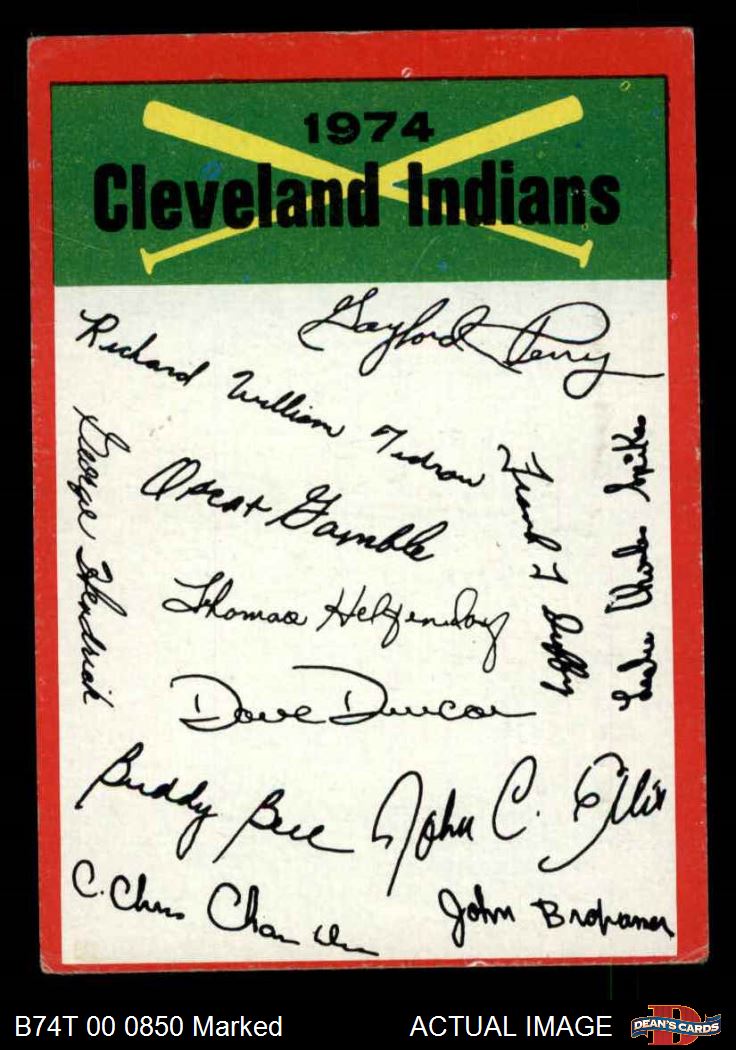 1974
Cleveland Indians
Gaylord Perry
Richard William Tidrow
George Hendrick
Oscar Gamble
Frank T Duffy
Leslie Charles Spikes
Thomas Hilgendorf
Dave Duncan
Buddy Bell
John C. Ellis
C. Chris Chambliss
John Brohamer
B74T 00 0850 Marked
ACTUAL IMAGE
DEAN'S CARDS